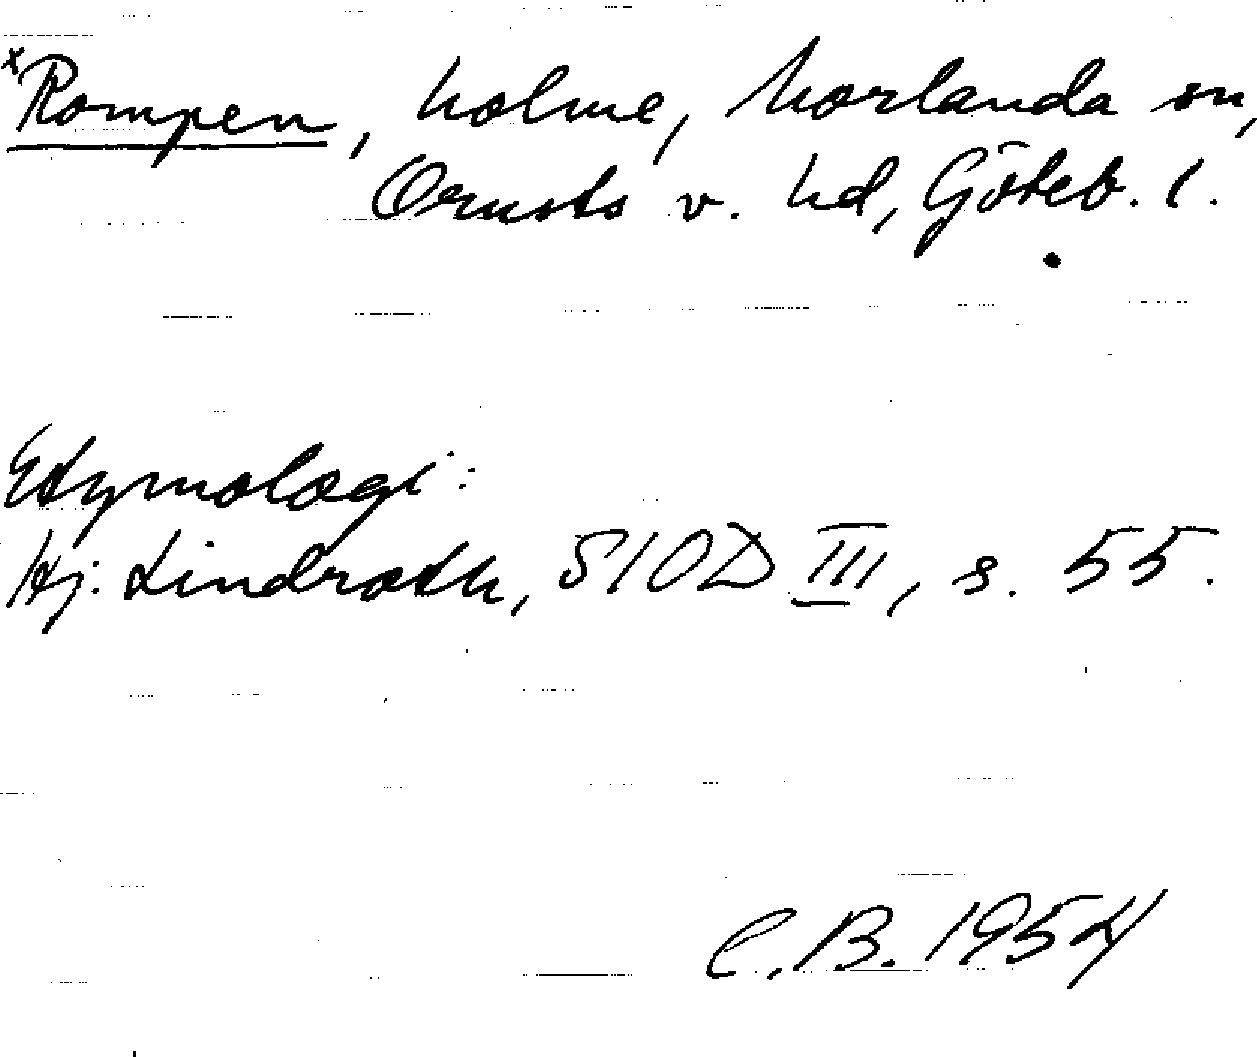 x Rompen, holme, Morlanda sn,
Orusts v. hd, Göteb. l.
Etymologi:
Hj. Lindroth, SIOD III, s. 55.
C.B. 1954